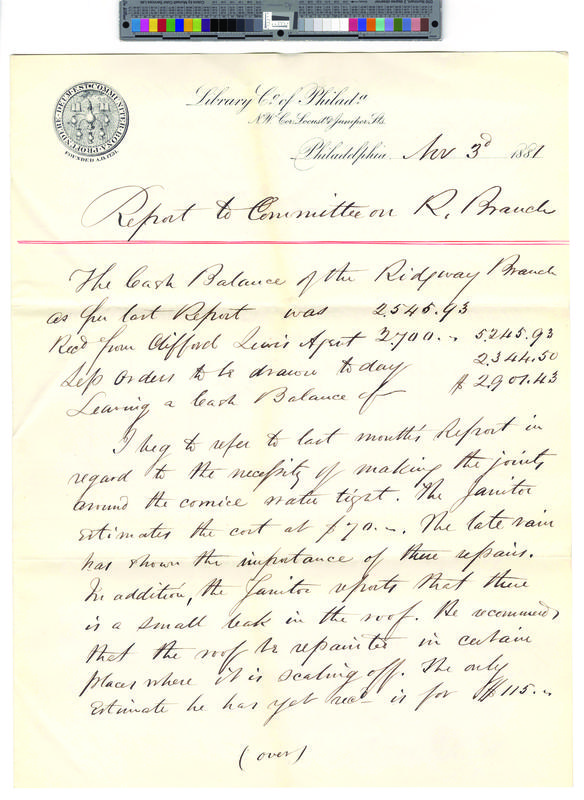 Library Co. of Philada.
N.W. Cor. Locust & Juniper Sts.
FOUNDED A.D. 1731.
Philadelphia Nov 3d 1881
Report to Committee on R. Branch
The Cash Balance of the Ridgway Branch
as per last Report was 2545.93
Recd from Clifford Lewis Agent 2700.- 5245.93
Less Orders to be drawn today 2344.50
Leaving a Cash Balance of $2901.43
I beg to refer to last month's Report in
regard to the necessity of making the joints
around the cornice water tight. The Janitor
estimates the cost at $70.-. The late rain
has shown the importance of these repairs.
In addition, the Janitor reports that there
is a small leak in the roof. He recommends
that the roof be repainted in certain
places where it is scaling off. The only
Estimate he has yet recd is for $115.-
(over)